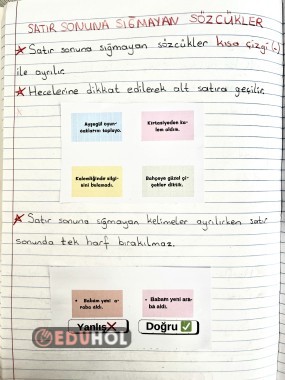 SATIR SONUNA SIĞMAYAN SÖZCÜKLER
Satır sonuna sığmayan sözcükler kısa çizgi (-)
ile ayrılır.
Hecelerine dikkat edilerek alt satıra geçilir.
Ayşegül oyun-
caklarını topluyo.
Kırtasiyeden ka-
lem aldım.
Kalemliğinde silgi-
sini bulamadı.
Bahçeye güzel çi-
çekler diktik.
Satır sonuna sığmayan kelimeler ayrılırken satır
sonunda tek harf bırakılmaz.
Babam yeni a-
raba aldı.
Babam yeni ara-
ba aldı.
Yanlış
Doğru
EDUHOL